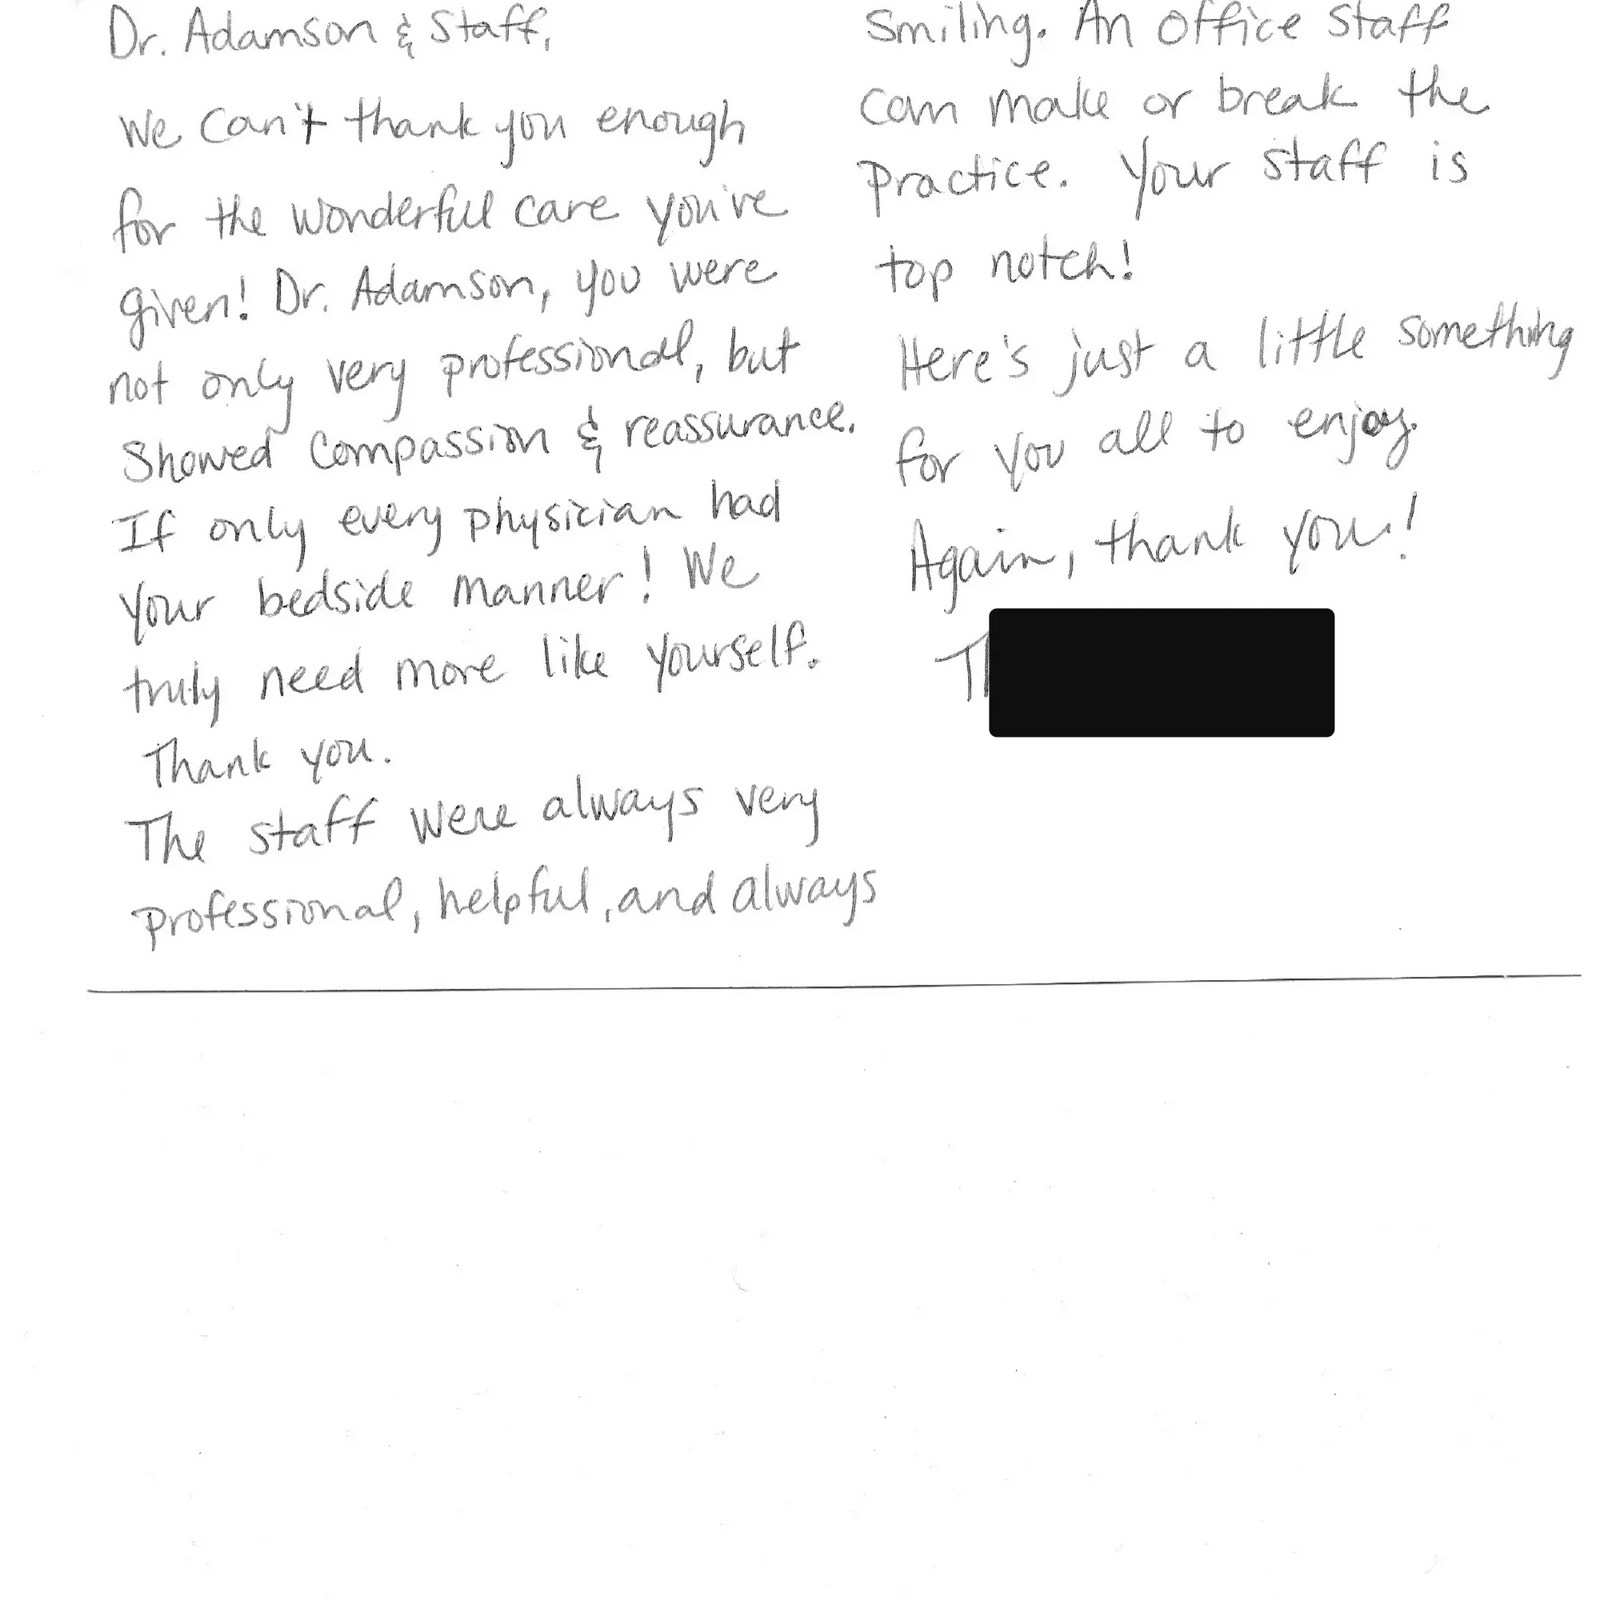 Dr. Adamson & Staff,
We can't thank you enough
for the wonderful care you've
given! Dr. Adamson, you were
not only very professional, but
showed compassion & reassurance.
If only every physician had
your bedside manner! We
truly need more like yourself.
Thank you.
The staff were always very
professional, helpful, and always
smiling. An office staff
can make or break the
practice. Your staff is
top notch!
Here's just a little something
for you all to enjoy.
Again, thank you!